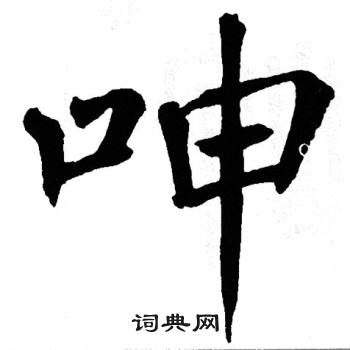 呻
词典网